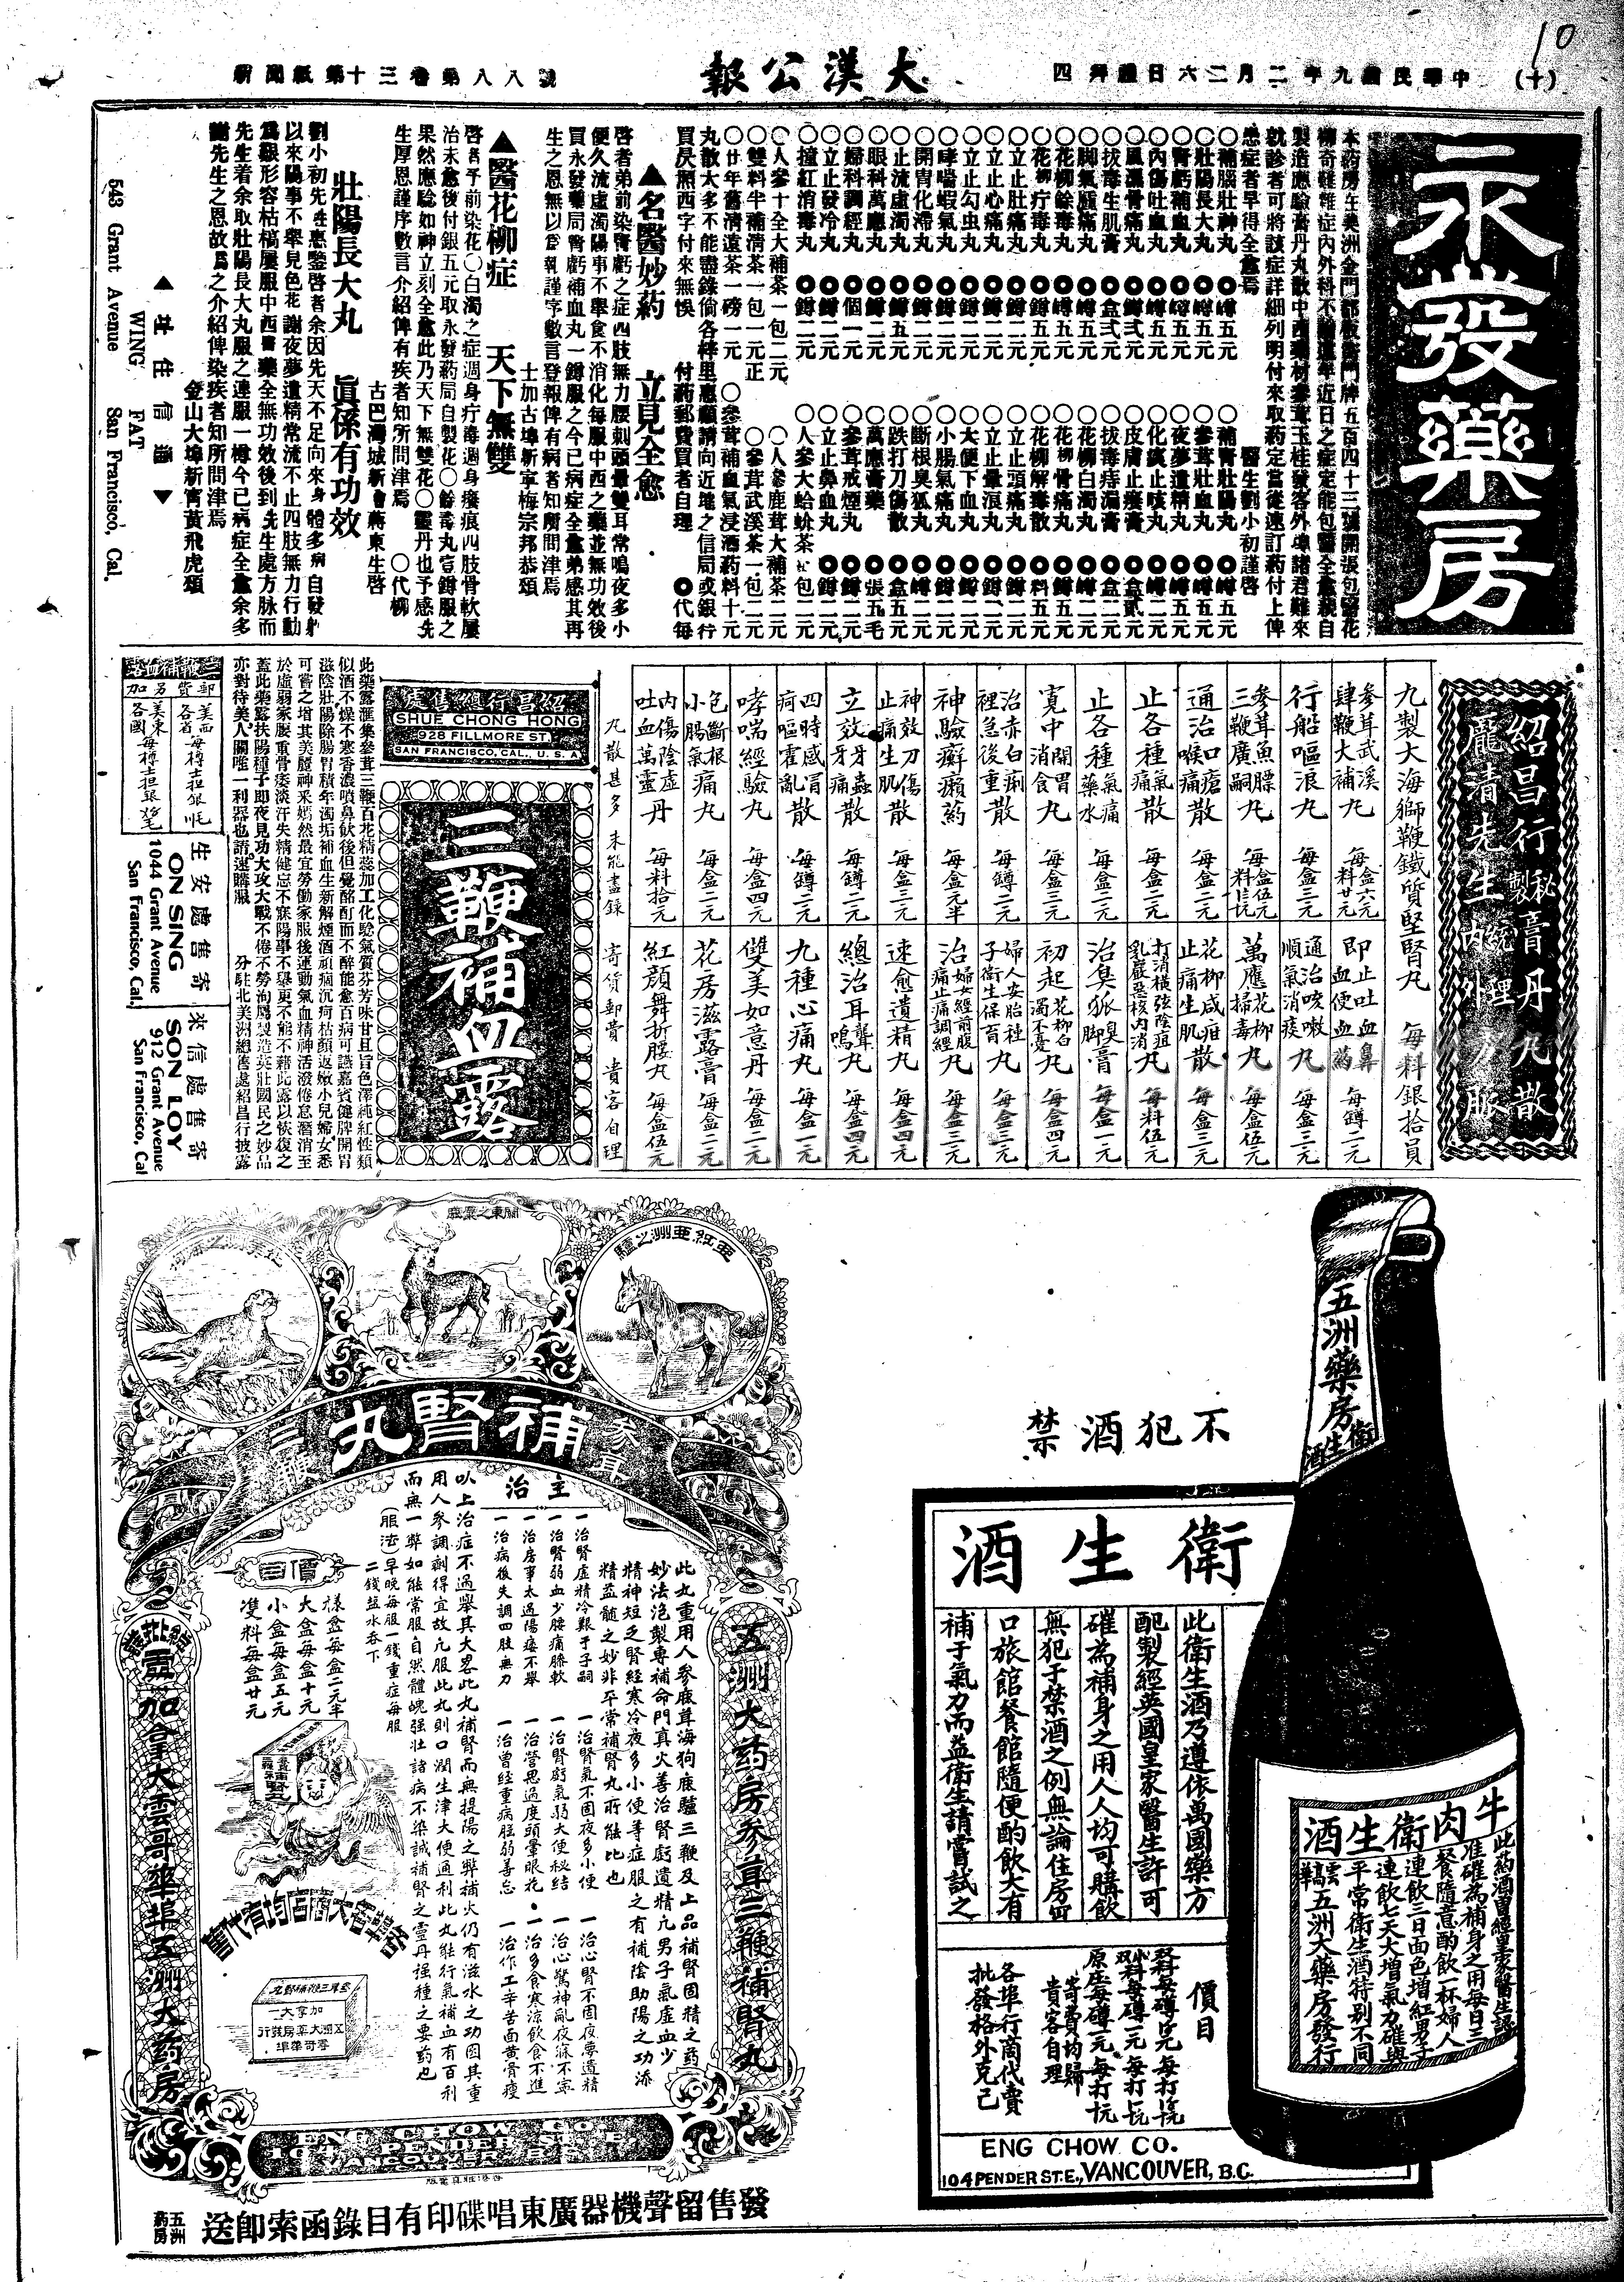 10
(十)
中華民國九年二月二六日禮拜四
大漢公報
新聞紙第十三卷第八八號
永發藥房
醫生劉小初謹啓
○補腦壯神丸 ◎罇五元
○壯陽長大丸 ◎罇五元
○腎虧補血丸 ◎罇五元
○內傷吐血丸 ◎罇五元
○風濕骨痛丸 ◎罇弍元
○拔毒生肌膏 ◎盒弍元
○脚氣腫痛丸 ◎罇五元
○花柳餘毒丸 ◎罇五元
○花柳疔毒丸 ◎罇五元
○立止肚痛丸 ◎罇二元
○立止心痛丸 ◎罇二元
○立止勾虫丸 ◎罇二元
○哮喘蝦氣丸 ◎罇二元
○開胃化滯丸 ◎罇二元
○止流虛濁丸 ◎罇五元
○眼科萬應丸 ◎罇二元
○婦科調經丸 ◎個一元
○立止發冷丸 ◎罇二元
○撞紅消毒丸 ◎罇二元
○補腎壯陽丸 ◎罇五元
○參茸壯血丸 ◎罇五元
○夜夢遺精丸 ◎罇五元
○化痰止咳丸 ◎罇二元
○皮膚止癢膏 ◎盒貳元
○拔毒痔漏膏 ◎盒二元
○花柳白濁丸 ◎罇二元
○花柳骨痛丸 ◎罇五元
○花柳解毒散 ◎料五元
○立止頭痛丸 ◎罇二元
○立止暈浪丸 ◎罇二元
○大便下血丸 ◎罇二元
○小腸氣痛丸 ◎罇二元
○斷根臭狐丸 ◎罇二元
○跌打刀傷散 ◎盒五元
○萬應膏藥 ◎張五毛
○參茸戒煙丸 ◎罇二元
○立止鼻血丸 ◎罇二元
○人參十全大補茶一包二元
○雙料半補淸茶一包一元正
○廿年舊淸遠茶一磅一元
○人參鹿茸大補茶二元
○參茸武溪茶一包二元
○參茸補血氣浸酒药料十元
丸散大多不能盡錄倘各梓里惠顧請向近埠之信局或銀行
買灰熙西字付來無悞 付药郵費買者自理
▲名醫妙药 立見全愈
啓者弟前染腎虧之症四肢無力腰刺頭暈雙耳常鳴夜多小
便久流虛濁陽事不舉食不消化每服中西之藥並無功效後
買永發藥局腎虧補血丸一罇服之今已病症全愈弟感其再
生之恩無以爲報謹字數言登報俾有病者知所問津焉
士加古埠新寧梅宗邦恭頌
▲醫花柳症 天下無雙
古巴灣城新會蔣東生啓
壯陽長大丸 眞係有功效
劉小初先生惠鑒啓者余因先天不足向來身體多病自發軔
以來陽事不舉見色花謝夜夢遺精常流不止四肢無力行動
爲艱形容枯槁屢服中西醫藥全無功效後到先生處方脉而
先生着余取壯陽長大丸服之連服一樽今已病症全愈余多
謝先生之恩故爲之介紹俾染疾者知所問津焉
金山大埠新寗黃飛虎頌
▲址住信通▼
WING FAT
543 Grant Avenue San Francisco, Cal.
紹昌行秘製膏丹丸散
龐清先生內外統理方脉
九製大海獅鞭鐵質堅腎丸 每料銀拾員
參茸武溪肆鞭大補丸 每盒六元 每料廿元
參茸魚膘三鞭廣嗣丸
行船嘔浪丸 每盒三元
通治口瘡喉痛散 每盒二元
止各種氣痛散 每盒三元
止各種氣痛藥水 每盒二元
寬中開胃消食丸 每盒三元
治赤白痢裡急後重散 每盒二元
神驗癬癩药 每罇元半
神效刀傷止痛生肌散 每罇二元
立效牙蟲牙痛散 每罇二元
四時感冒痾嘔霍亂散 每罇二元
哮喘經驗丸 每盒四元
包斷根小腸氣痛丸 每盒二元
內傷陰虛吐血萬靈丹 每料拾元
丸散甚多未能盡錄 寄貨郵費貴客自理
即止吐血鼻血便血药 每罇二元
通治咳嗽順氣消痰丸 每盒三元
萬應花柳掃毒丸 每盒伍元
花柳咸疳止痛生肌散 每盒三元
打消橫弦陰疽乳巖惡核內消丸 每料伍元
治臭狐臭脚膏 每盒一元
初起花柳白濁不憂丸 每盒四元
婦人安胎種子衛生保育丸 每盒三元
治婦女經前腹痛止痛調經丸 每盒三元
速愈遺精丸 每盒四元
總治耳聾耳鳴丸 每盒四元
九種心痛丸 每盒一元
雙美如意丹 每盒二元
花房滋露膏 每盒二元
紅顏舞折腰丸 每盒伍元
紹昌行總售處
SHUE CHONG HONG
928 FILLMORE ST.
SAN FRANCISCO, CAL., U.S.A.
三鞭補血露
此藥露滙集參茸三鞭百花精蕊加工化騐氣質芬芳味甘且旨色澤純紅性類
似酒不燥不寒香濃噴鼻飲後但覺酩酊而不醉能愈百病可讌嘉賓健脾開胃
滋陰壯陽除腸胃積年濁垢補血生新解煙酒頑痼沉疴枯顏返嫩小兒婦女悉
可嘗之增其美麗神釆嫣然最宜勞働家服後運動氣血精神活潑倦怠潛消至
於虛弱家腰重骨痿淡汗失精健忘不寐陽事不舉更不能不藉此露以恢復之
蓋此藥露扶陽種子即夜見功大攻大戰不倦不勞洵屬製造英壯國民之妙品
亦對待美人關唯一利器也請速購服 分駐北美洲總售處紹昌行披露
三鞭補血露
郵費另加
生安處售寄
ON SING
1044 Grant Avenue
San Francisco, Cal.
來信處售寄
SON LOY
912 Grant Avenue
San Francisco, Cal
關東之藥鹿
亞紅亞洲之驢
參茸補腎丸三鞭
主治
此丸重用人參鹿茸海狗鹿驢三鞭及上品補腎固精之药
妙法泡製專補命門真火善治腎虧遺精凡男子氣虛血少
精神短乏腎經寒冷夜多小便等症服之有補陰助陽之功添
精益髓之妙非平常補腎丸所能比也
一治腎虛精冷艱于子嗣 一治腎氣不固夜多小便 一治心腎不固夜夢遺精
一治腎弱血少腰痛膝軟 一治腎虧氣弱大便秘結 一治心驚神亂夜寐不寧
一治房事太過陽痿不舉 一治營思過度頭暈眼花 一治多食寒涼飲食不進
一治病後失調四肢無力 一治曾經重病胆弱善忘 一治作工辛苦面黃骨瘦
以上治症不過舉其大畧此丸補腎而無提陽之弊補火仍有滋水之功因其重
用人參調劑得宜故凡服此丸則口潤生津大便通利此丸能行氣補血有百利
而無一弊如能常服自然體魄强壯諸病不染誠補腎之靈丹强種之要药也
(服法)早晚每服一錢重症每服
二錢塩水吞下
價目
樣盒每盒二元半
大盒每盒十元
小盒每盒五元
雙料每盒廿元
各埠香大商店均有代售
五洲大药房參茸三鞭補腎丸
總批發處加拿大雲哥華埠五洲大药房
ENG CHOW CO.
104 PENDER ST. E.
VANCOUVER B.C.
發售留聲機器廣東唱碟印有目錄函索即送
五洲药房
不犯酒禁
衛生酒
此衛生酒乃遵依萬國藥方
配製經英國皇家醫生許可
確為補身之用人人均可購飲
無犯于禁酒之例無論住房鋪
口旅館餐館隨便酌飲大有
補于氣力而益衛生請嘗試之
價目
寄費均歸貴客自理
各埠行商代賣
批發格外克己
ENG CHOW CO.
104 PENDER ST. E., VANCOUVER, B.C.
五洲藥房
衛生酒
牛肉衛生酒
此药酒曾經皇家醫生認
准確為補身之用每日三
餐隨意酌飲一杯婦人
連飲三日面色增紅男子
連飲七天大增氣力確與
平常衛生酒特別不同
雲高華五洲大藥房發行